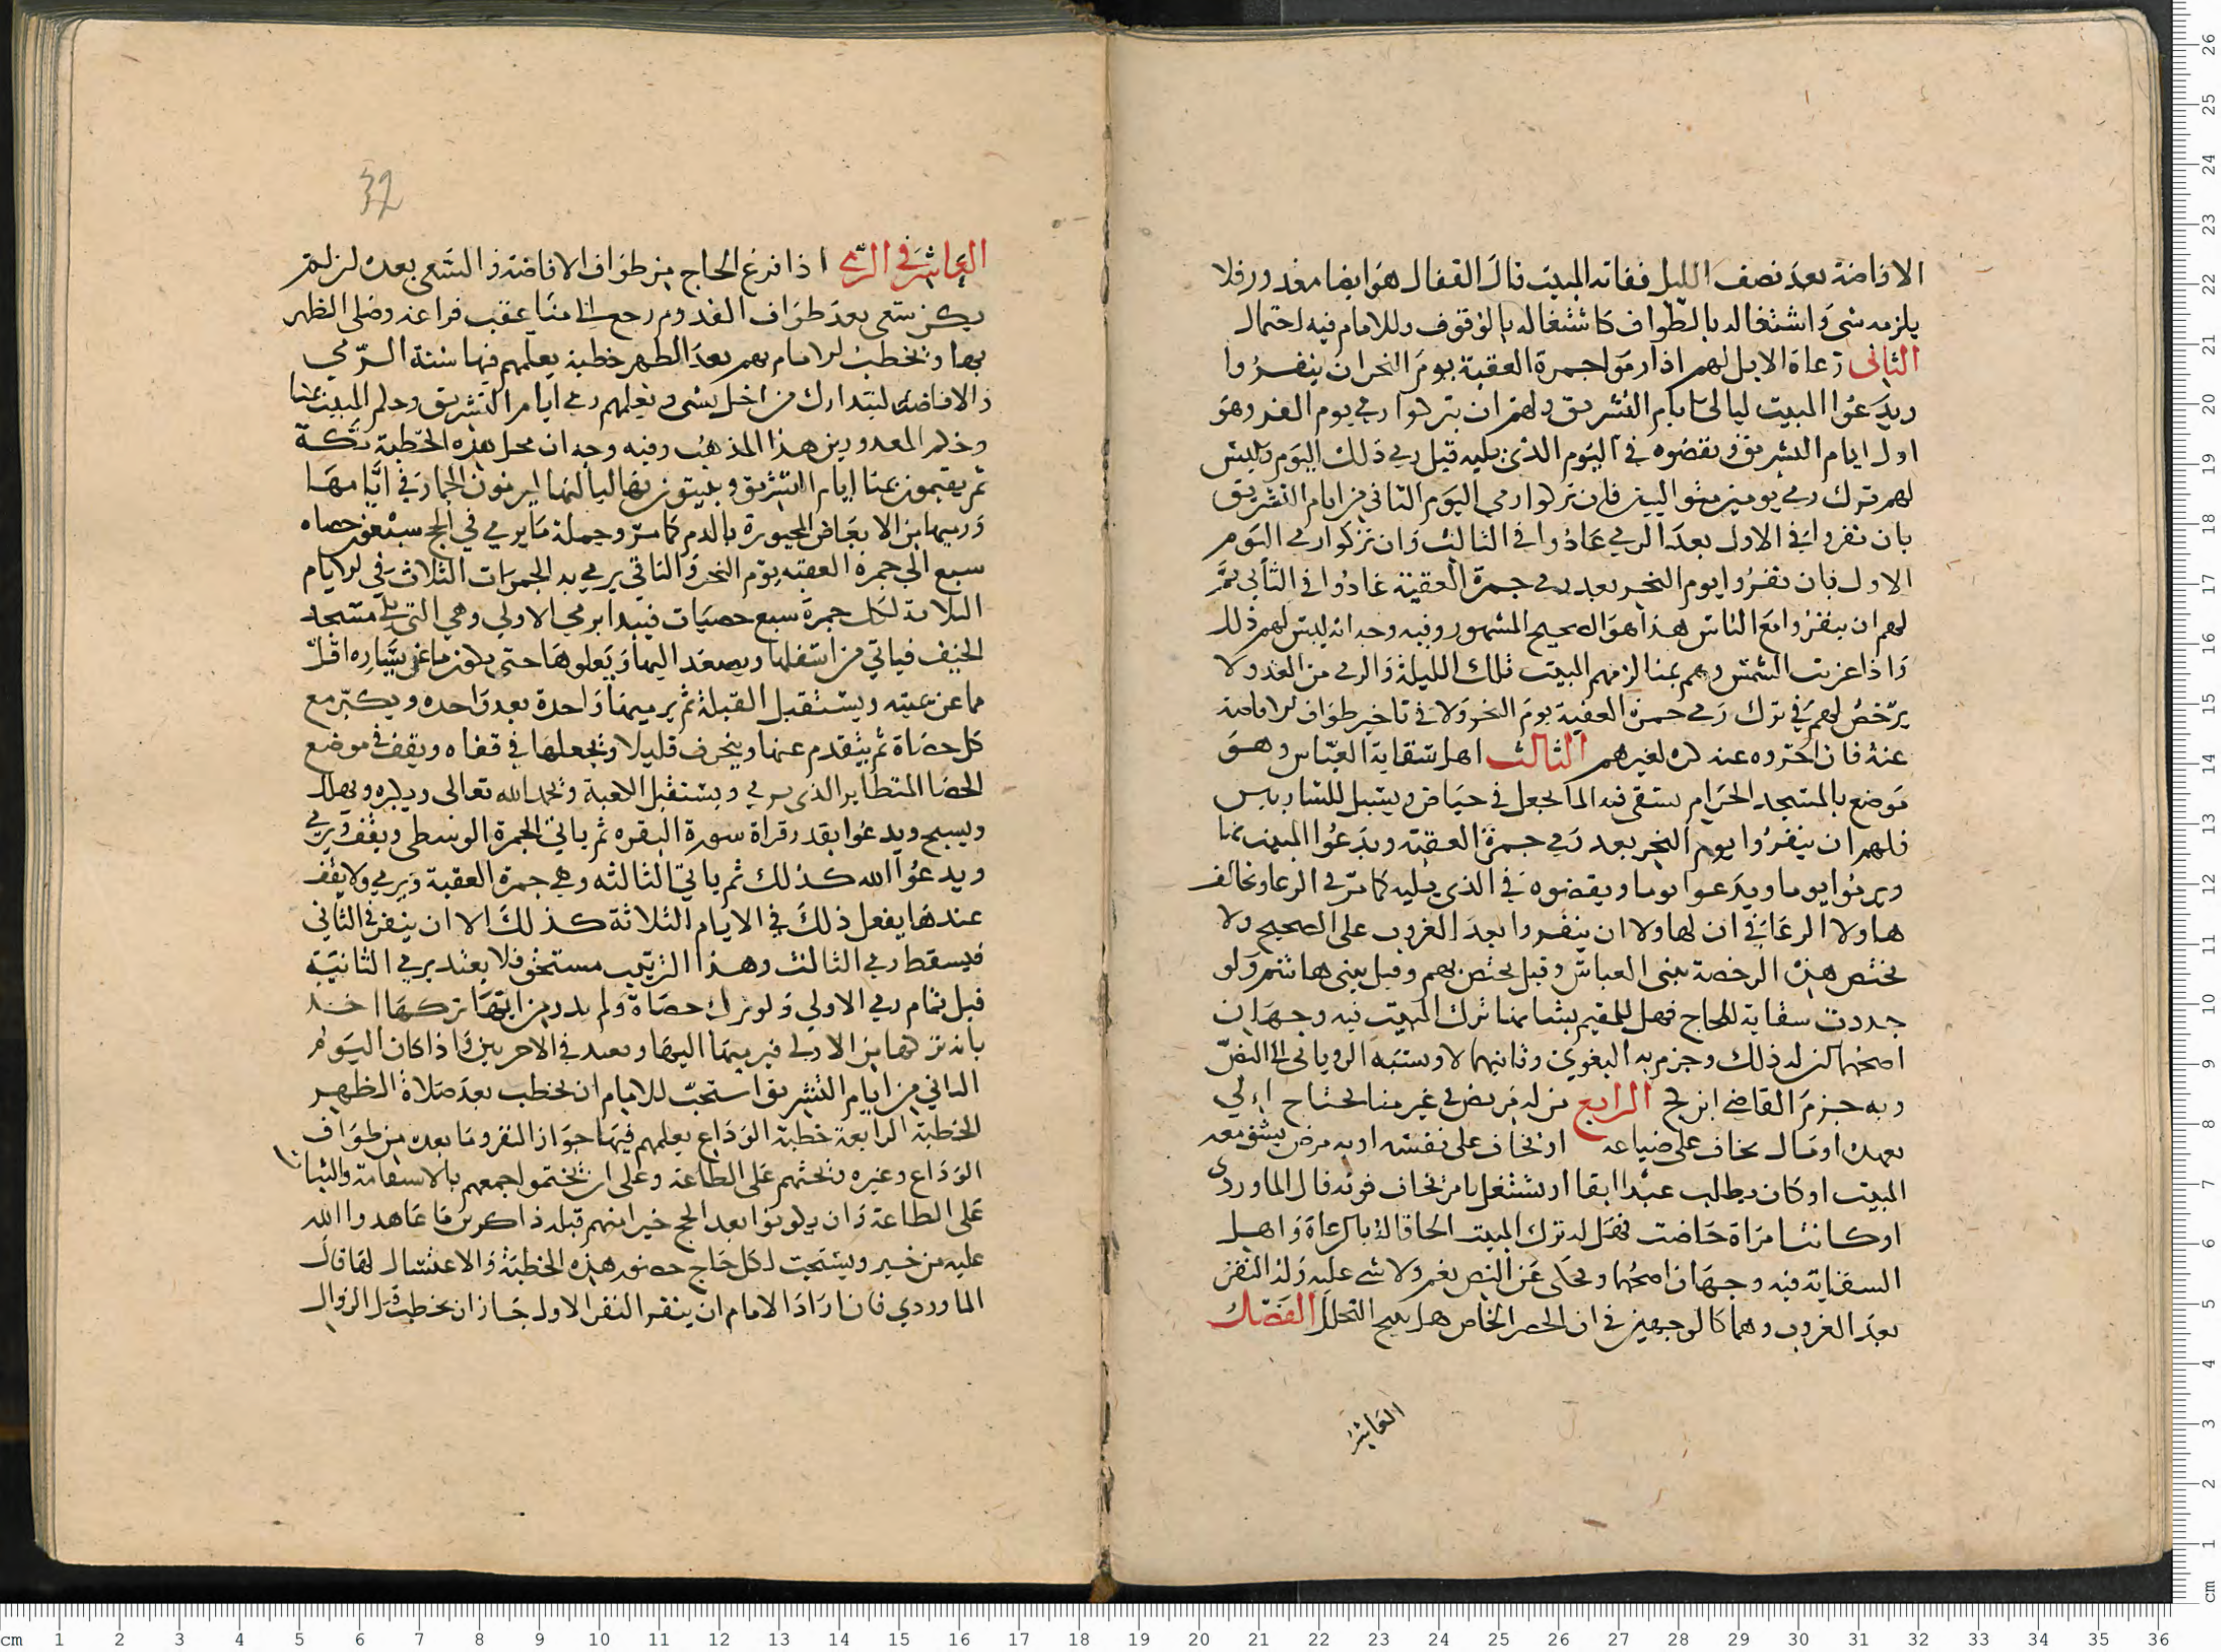 الافاضة بعد نصف الليل ففاته المبيت قال القفال هو ايضا معذور فلا
يلزمه شى واشتغاله بالطواف كاشتغاله بالوقوف وللامام فيه احتمال
الثانى رعاة الابل لهم اذا رموا جمرة العقبة يوم النحر ان ينفروا
ويدعوا المبيت ليالى ايام التشريق ولهم ان يتركوا رمى يوم الغد وهو
اول ايام التشريق ويقضوه فى اليوم الذى يليه قبل رمى ذلك اليوم وليس
لهم ترك رمى يومين متواليين فان تركوا رمى اليوم الثانى من ايام التشريق
بان نفروا فى الاول بعد الرمى عادوا فى الثالث وان تركوا رمى اليوم
الاول فان نفروا يوم النحر بعد رمى جمرة العقبة عادوا فى الثانى ثم
لهم ان ينفروا مع الناس هذا هو الصحيح المشهور وفيه وجه انه ليس لهم ذلك
واذا غربت الشمس وهم بمنا لزمهم المبيت تلك الليلة والرمى من الغد ولا
يرخص لهم فى ترك رمى جمرة العقبة يوم النحر ولا فى تاخير طواف الافاضة
عنه فان اخروه عنه كره لغيرهم الثالث اهل سقاية العباس وهو
موضع بالمسجد الحرام يستقى فيه الما يجعل فى حياض ويسبل للشاربين
فلهم ان ينفروا يوم النحر بعد رمى جمرة العقبة ويدعوا المبيت بمنا
ويرموا يوما ويدعوا يوما ويقضوه فى الذى يليه كما مر فى الرعا وتخالف
هاولا الرعا فى ان لهاولا ان ينفروا بعد الغروب على الصحيح ولا
تختص هذه الرخصة ببنى العباس وقيل يختص بهم وقيل ببنى هاشم ولو
جددت سقاية للحاج فهل للمقيم بشانها ترك المبيت فيه وجهان
اصحهما كن له ذلك وجزم به البغوى وثانيهما لا ونسبه الرويانى الى النص
وبه جزم القاضى ابن كج الرابع من له مريض فى غير منا يحتاج الي
تعهده او مال يخاف على ضياعه او يخاف على نفسه او به مرض يشق معه
المبيت او كان يطلب عبدا ابقا او يشتغل بامر يخاف فوته قال الماوردى
او كانت امراة حاضت فهل له ترك المبيت الحاقا له بالرعاة واهل
السقاية فيه وجهان اصحهما ويحكى عن النص نعم ولا شى عليه وله النفر
بعد الغروب وهما كالوجهين فى ان الحصر الخاص هل يبيح التحلل الفصل
العاشر
32
العاشر فى الرمى اذا فرغ الحاج من طواف الافاضة والسعى بعده ان لم
يكن سعى بعد طواف القدوم رجع الى منا عقب فراغه وصلى الظهر
بها ويخطب الامام بهم بعد الظهر خطبة يعلمهم فيها سنة الرمي
والافاضة ليتدارك من اخل بشى ويعلمهم رمى ايام التشريق وحكم المبيت بمنا
وحكم المعذورين هذا المذهب وفيه وجه ان محل هذه الخطبة بمكة
ثم يقيمون بمنا ايام التشريق ويبيتون بها لياليها ليرمون الجمار فى ايامها
ورميها من الابعاض المجبورة بالدم كما مر وجملة ما يرمي في الحج سبعون حصاه
سبع الى جمرة العقبه يوم النحر والباقي يرمي به الجمرات الثلاث في الايام
الثلاثة لكل جمرة سبع حصيات فيبدا برمي الاولي وهي التي يلى مسجد
الخيف فياتي من اسفلها ويصعد اليها ويعلوها حتى يكون ما عن يساره اقل
مما عن يمينه ويستقبل القبلة ثم يرميها واحدة بعد واحده ويكبر مع
كل حصاة ثم يتقدم عنها وينحرف قليلا ويجعلها في قفاه ويقف في موضع
الحصا المتطاير الذى يرمي ويستقبل الكعبة ويحمد الله تعالى ويكبره ويهلل
ويسبح ويدعوا بقدر قراة سورة البقره ثم ياتي الجمرة الوسطى ويقف ويرمى
ويدعوا الله كذلك ثم ياتي الثالثه وهي جمرة العقبة ويرمي ولا يقف
عندها يفعل ذلك في الايام الثلاثة كذلك الا ان ينفر فى الثاني
فيسقط رمى الثالث وهذا الترتيب مستحق فلا يعتد برمى الثانية
قبل تمام رمي الاولي ولو ترك حصاة ولم يدر من ايتها تركها اخذ
بانه تركها من الاولى فيرميها اليها ويعيد في الاخريين واذا كان اليوم
الثاني من ايام التشريق استحب للامام ان يخطب بعد صلاة الظهر
الخطبة الرابعة خطبة الوداع يعلمهم فيها جواز النفر وما بعده من طواف
الوداع وغيره ويحثهم على الطاعة وعلى ان يختموا حجهم بالاستقامة والثبات
على الطاعة وان يكونوا بعد الحج خيرا منهم قبله ذاكرين ما عاهدوا الله
عليه من خير ويستحب لكل حاج حضور هذه الخطبة والاغتسال لها قال
الماوردي فان اراد الامام ان ينفر النفر الاول جاز ان يخطب قبل الزوال